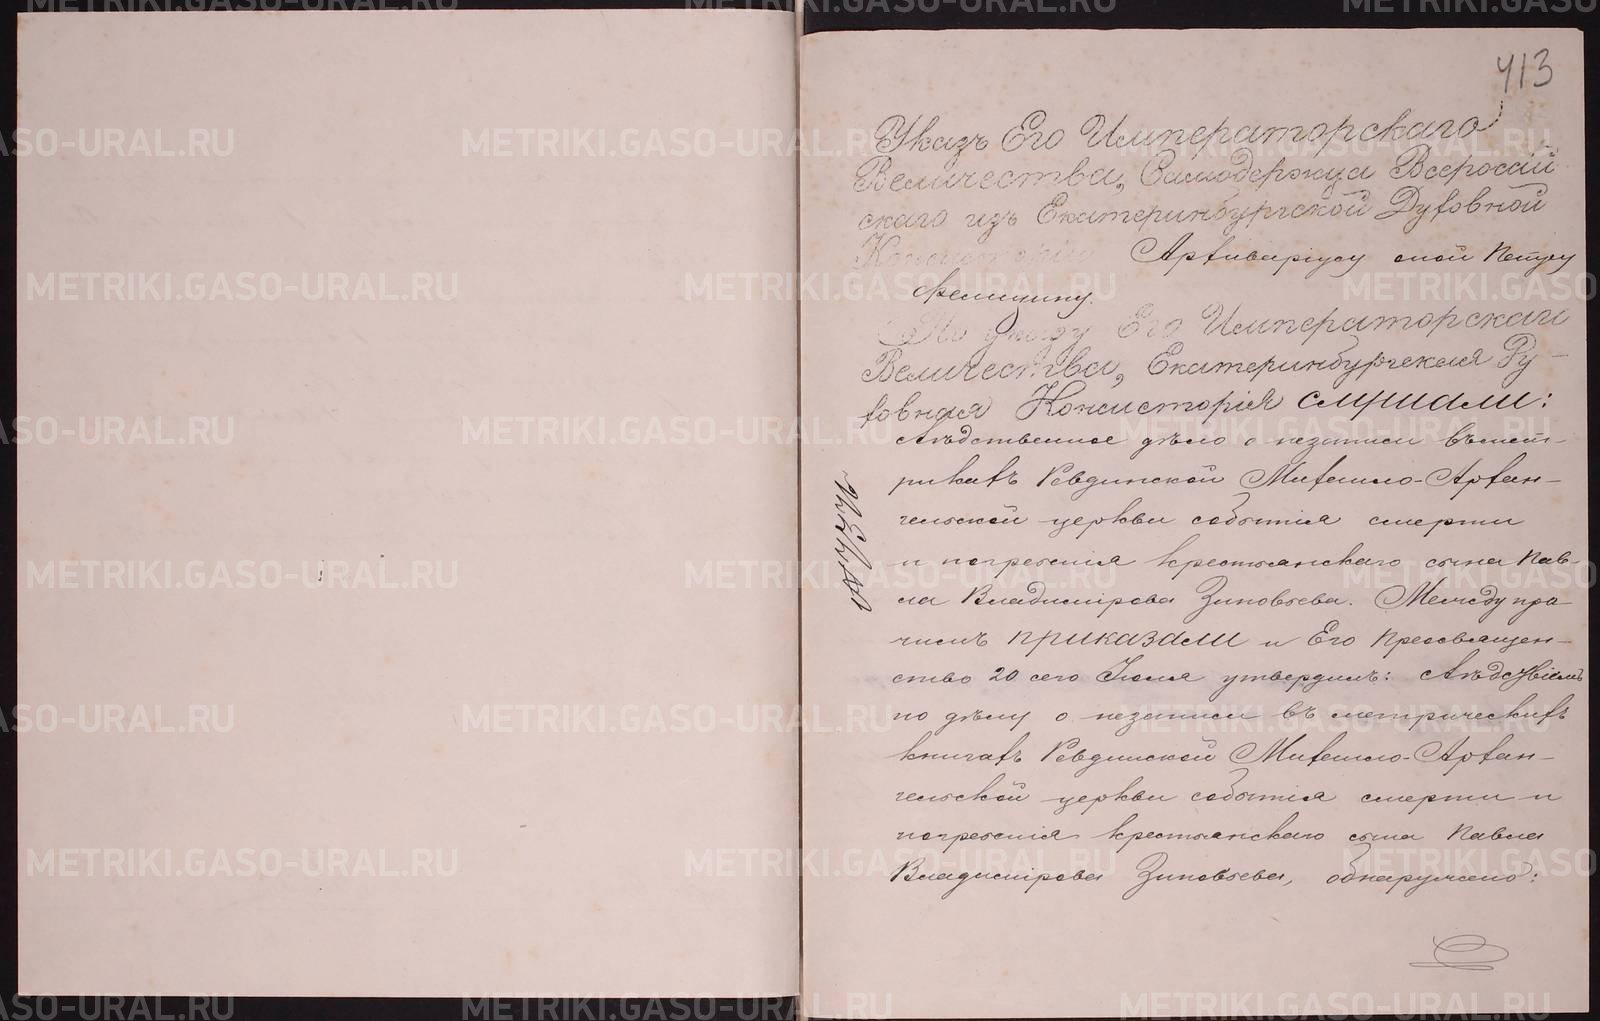 413
Указъ Его Императорскаго
Величества, Самодержца Всероссій
скаго изъ Екатеринбургской Духовной
Консисторіи Архиваріусу оной Петру
Фелицину.
По указу Его Императорскаго
Величества, Екатеринбургская Ду-
ховная Консисторія слушали:
Слѣдственное дѣло о незаписи въ мет-
рикахъ Ревдинской Михаило-Архан-
гельской церкви событія смерти
и погребенія крестьянскаго сына Пав-
ла Владимірова Зиновьева. Между про-
чимъ приказали и Его Преосвящен-
ство 20 сего Іюля утвердилъ: Слѣдствіемъ
по дѣлу о незаписи въ метрическихъ
книгахъ Ревдинской Михаило-Архан-
гельской церкви событія смерти и
погребенія крестьянскаго сына Павла
Владимірова Зиновьева, обнаружено:
METRIKI.GASO-URAL.RU